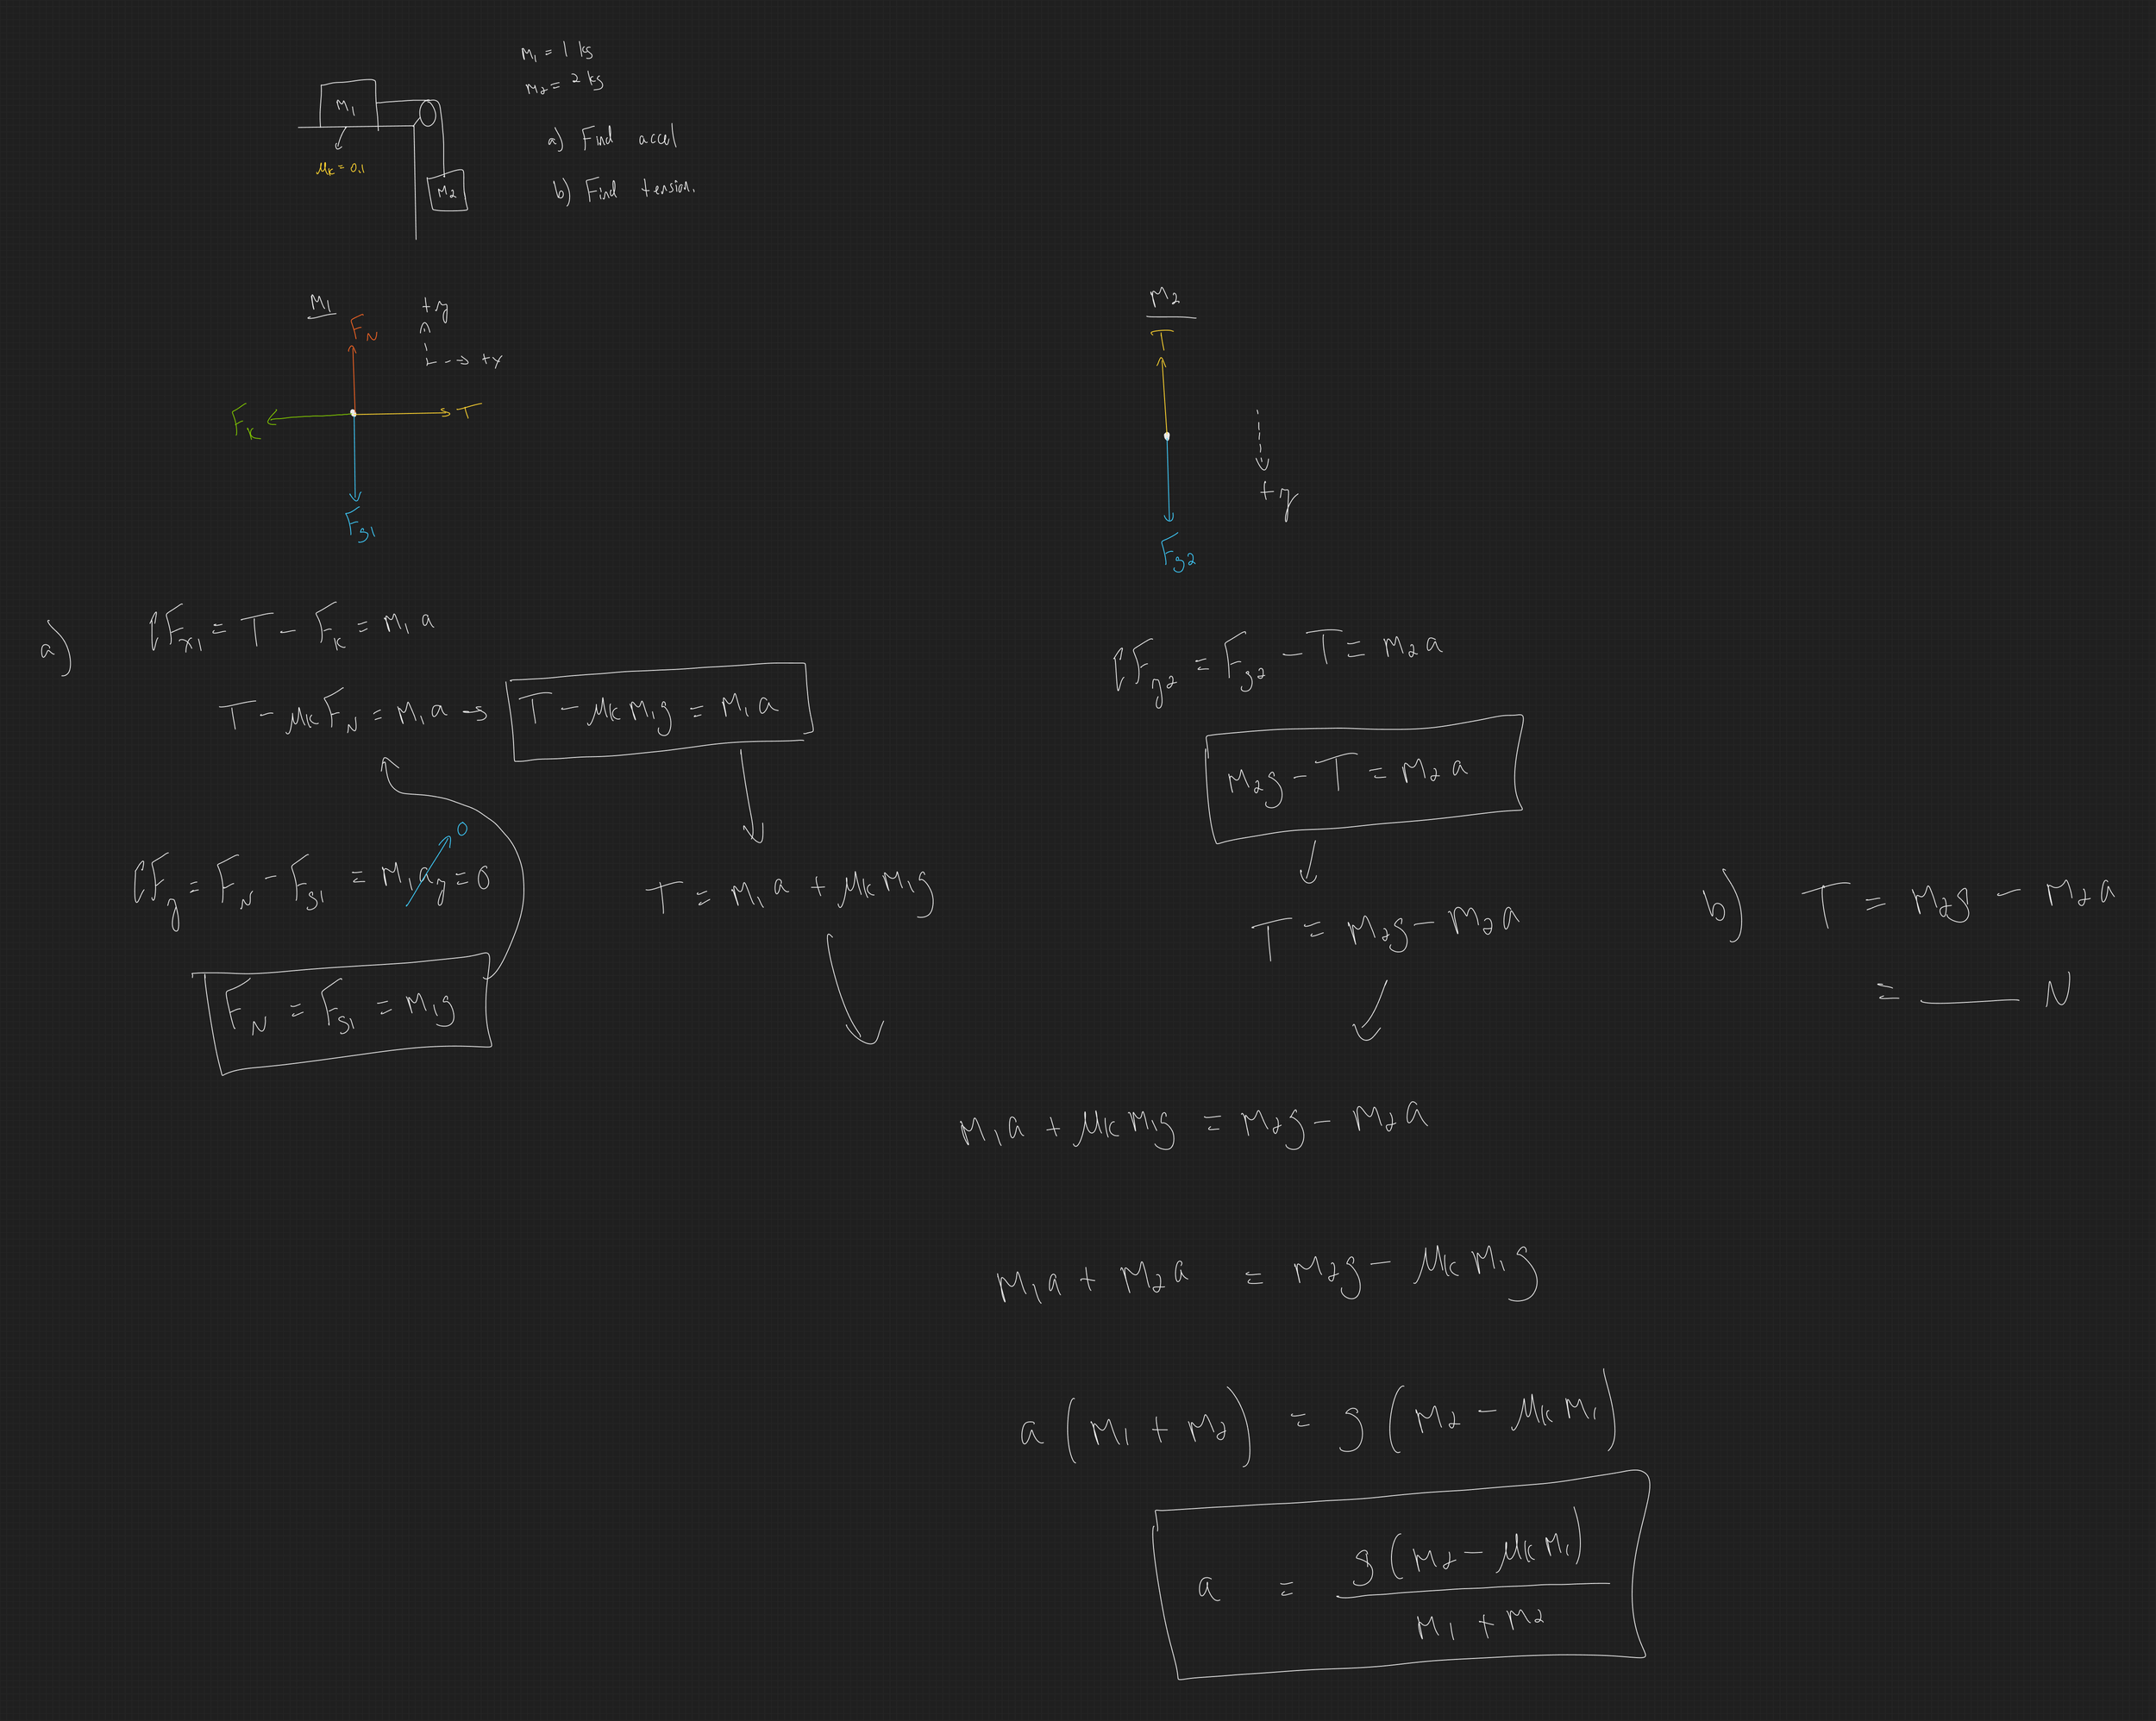 M₁ = 1 kg
M₂ = 2 kg
M₁
a) Find accel
μk = 0.1
M₂
b) Find tension.
M₁
+y
FN
+x
Fk
T
Fg1
M₂
T
+y
Fg2
a)
ΣFx1 = T - Fk = M₁a
T - μk FN = M₁a → T - μk M₁g = M₁a
ΣFy = FN - Fg1 = M₁ay = 0
0
FN = Fg1 = M₁g
T = M₁a + μk M₁g
ΣFy2 = Fg2 - T = M₂a
M₂g - T = M₂a
T = M₂g - M₂a
b) T = M₂g - M₂a
= ____ N
M₁a + μk M₁g = M₂g - M₂a
M₁a + M₂a = M₂g - μk M₁g
a (M₁ + M₂) = g (M₂ - μk M₁)
a = g (M₂ - μk M₁) / M₁ + M₂